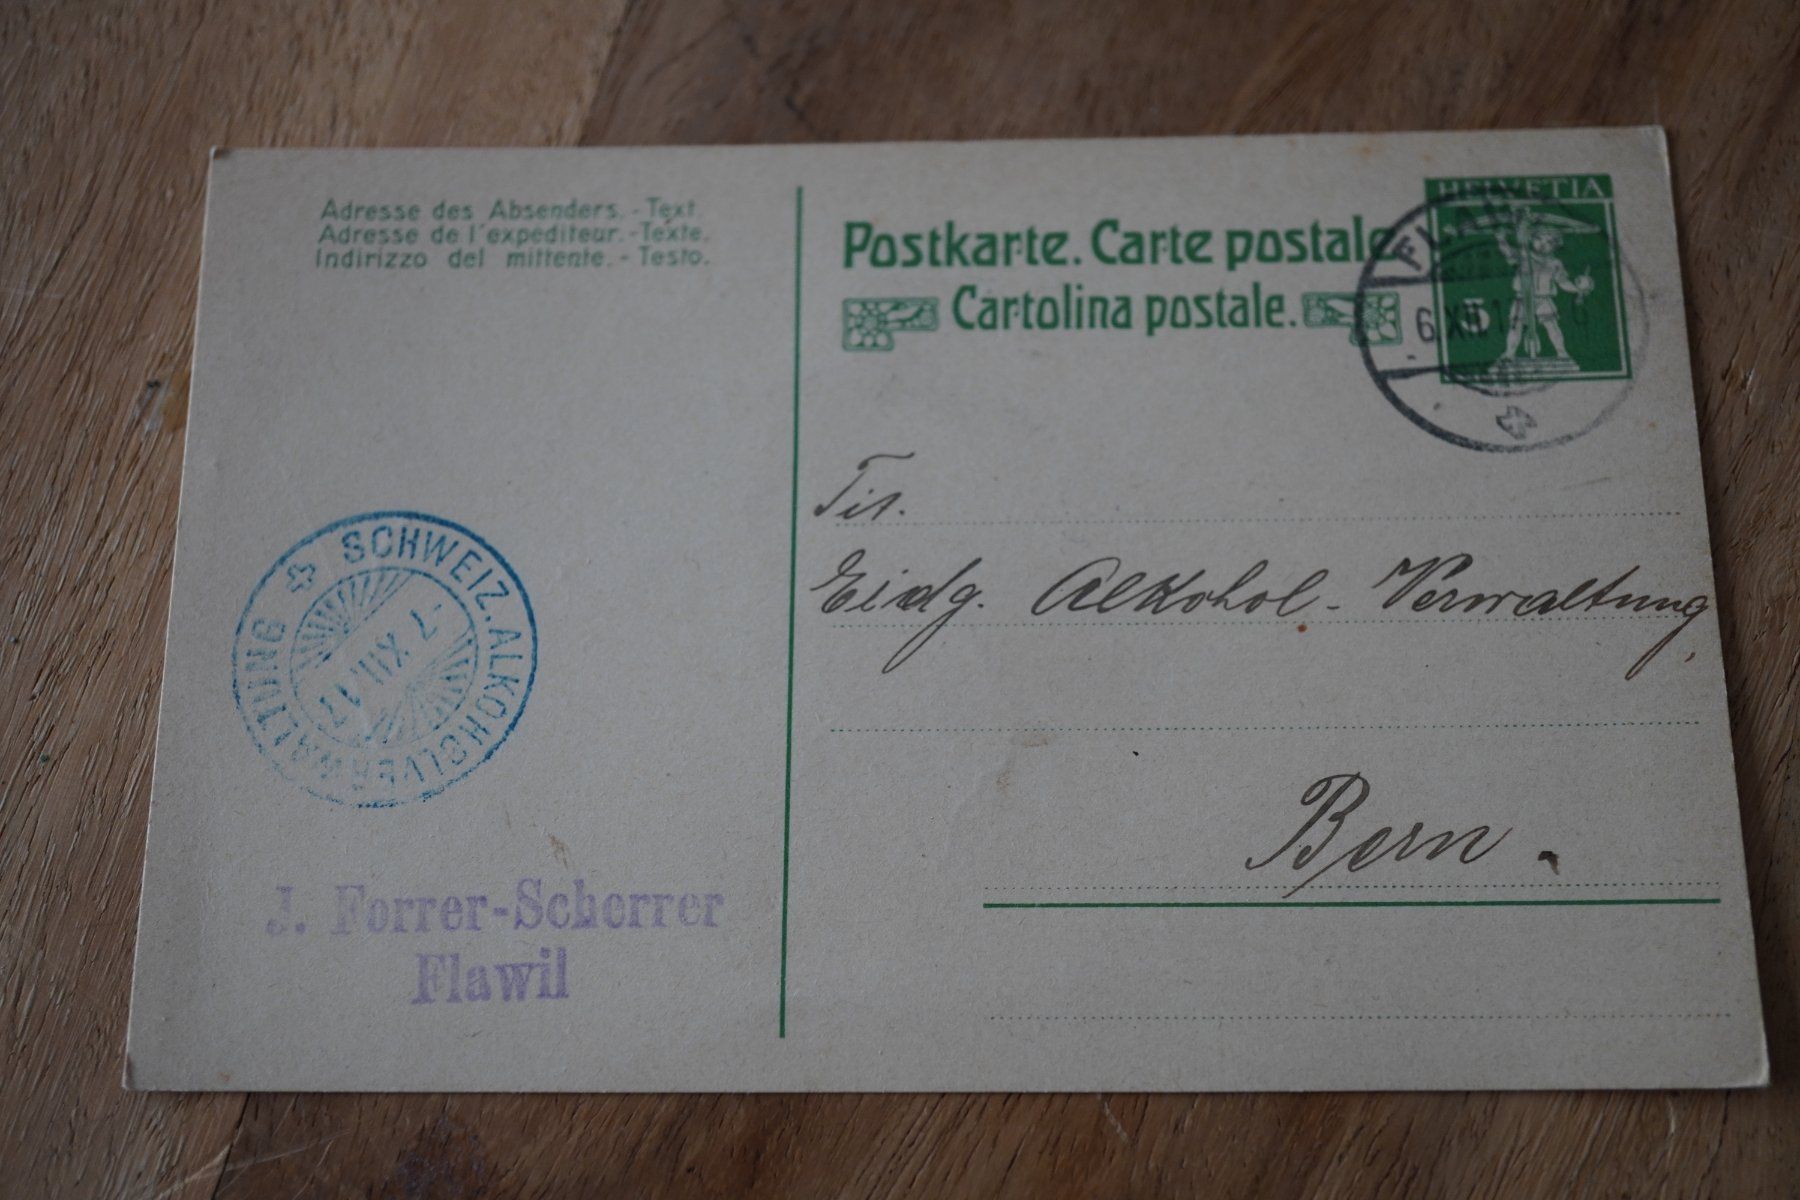 Adresse des Absenders. - Text.
Adresse de l'expéditeur. - Texte.
Indirizzo del mittente. - Testo.
Postkarte. Carte postale
Cartolina postale.
HELVETIA
5
FLAWIL
6.XII.17
Tit.
Eidg. Alkohol-Verwaltung,
Bern.
SCHWEIZ. ALKOHOLVERWALTUNG
-7.XII.17
J. Forrer-Scherrer
Flawil